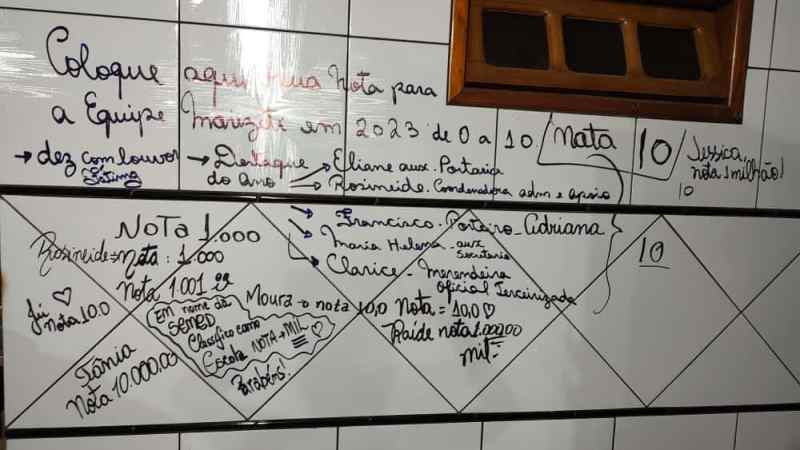 Coloque aqui sua Nota para
a Equipe Marizete em 2023 de 0 a 10. Nata 10 Jessica,
nota 1 milhão!
10
→ dez com louvor → Destaque → Eliane aux. Portaria
Fátima do Ano → Rosineide. Coordenadora adm e apoio
→ Francisco - Porteiro - Adriana
→ Maria Helena - aux
Secretaria
→ Clarice - Merendeira
Oficial Terceirizada
10
NoTa 1.000
Rosineide → nota : 1.000
Nota 1.001
Jú ♡
Nota 10.0
Em nome da
SEMED
Classifico como
Escola NOTA → MIL ♡
Parabéns!
Moura → nota 10,0 Nota = 10,0 ♡
Raide nota 1.000.00
mil
Tânia
Nota 10.000.00